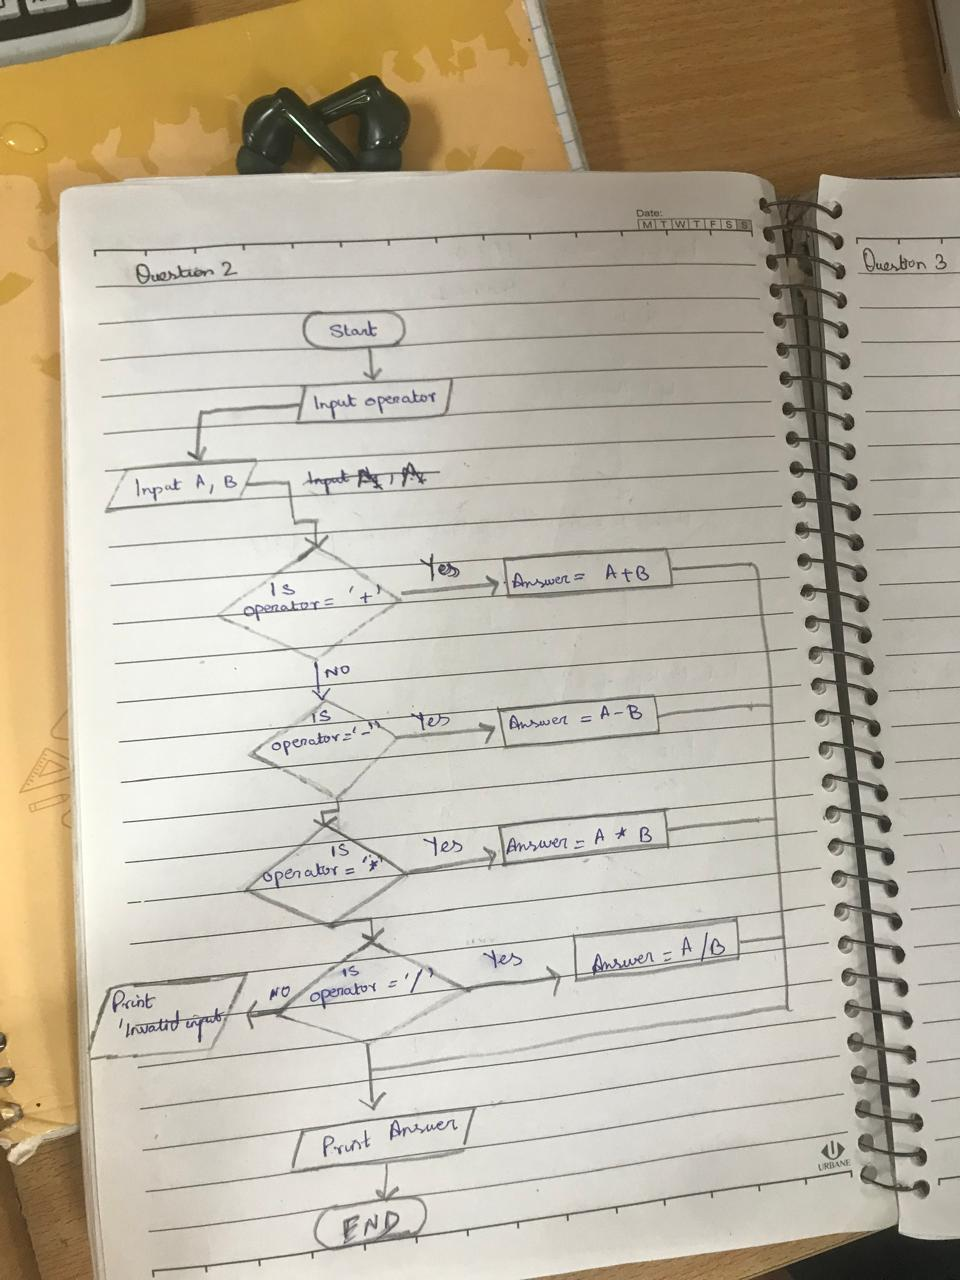 Date:
M T W T F S S
Question 2
Question 3
Start
Input operator
Input A, B
IS
operator = '+'
Yes
Answer = A+B
NO
IS
operator = '-'
Yes
Answer = A-B
IS
operator = '*'
Yes
Answer = A * B
IS
operator = '/'
Yes
Answer = A/B
NO
Print
'Invalid input
Print Answer
END
URBANE